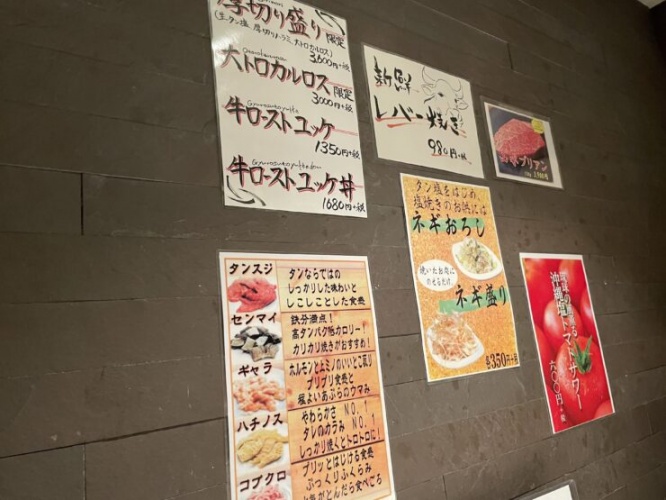 厚切り盛り 限定
(生タン塩 厚切りハラミ 大トロカルロス)
3,600円+税
大トロカルロス 限定
3000円+税
牛ローストユッケ
1350円+税
牛ローストユッケ丼
1680円+税
新鮮
レバー焼き
980円+税
ブリアン
タン塩をはじめ、
塩焼きのお供には
ネギおろし
焼いたお肉に
のせるだけ
ネギ盛り
各350円+税
沖縄塩トマトサワー
六〇〇円+税
タンスジ
タンならではの
しっかりした味わいと
しこしことした食感
センマイ
鉄分満点!
高タンパク低カロリー!
カリカリ焼きがおすすめ!
ギャラ
ホルモンとミノのいいとこ取り
プリプリ食感と
程よいあぶらのウマみ
ハチノス
やわらかさ NO.1
タレのからみ NO.1
しっかり焼くとトロトロに!
コブクロ
プリッとはじける食感
ぷっくりふくらみ